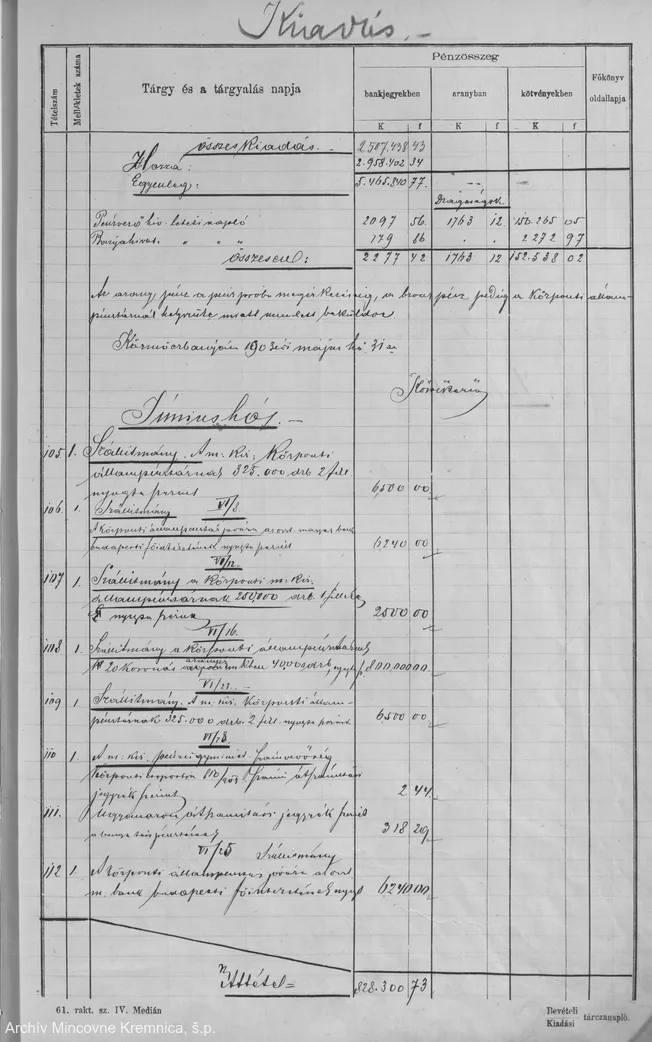 Kiadás.
Tételszám
Mellékletek száma
Tárgy és a tárgyalás napja
Pénzösszeg
bankjegyekben
aranyban
kötvényekben
Főkönyv
oldallapja
K f K f K f
összes kiadás. 2.507.438 43
Hozzá: 2.958.402 34
Egyenleg: 5.465.840 77 -- --
Drágaságok
Pénzverő hiv. letéti napló 2097 56 1763 12 150.265 05
Bányahivat. " " 179 86 . . 2272 97
összesen: 2277 42 1763 12 152.538 02
Az arany pénz a pénzpróba megérkezéséig, a bronz pénz pedig a központi állam-
pénztárnál helyszűke miatt nem lett beküldve
Körmöczbányán 1903 évi május hó 31 én
Június hó.
105. 1. Szállítmány. A m. kir. Központi
állampénztárnak 325.000 drb 2 fill
nyugta szerint 6,500 00
VI/8.
106. 1. Szállítmány
A Központi állampénztár javára az oszt. magyar bank
budapesti főintézetének nyugta szerint 6240 00
VI/12.
107 1. Szállítmány a Központi m. kir.
állampénztárnak 250,000 drb. 1 filléres
nyugta szerint 2500 00
VI/16.
108 1. Szállítmány a Központi állampénztárnak
20 koronás aranyérmekben 40000 drb, nyugt. sz 800.000 00
VI/22.
109 1. Szállítmány. A m. kir. Központi állam-
pénztárnak 325.000 drb. 2 fill. nyugta szerint 6,500 00
VI/28.
110 1. A m. kir. pénzügyminist. számvevőség
Központi csoportja 810/903 számú átszámítási
jegyzék szerint 2 44
111. Ugyanazon átszámítási jegyzék szerint
a bánya társpénztárnak 318 29
VI/25 Szállítmány
112 1. A Központi állampénztár javára az oszt.
m. bank budapesti főintézetének nyugt 6240 00
Áttétel 828.300 73
61. rakt. sz. IV. Medián
Bevételi
Kiadási
tárczanapló.
Archív Mincovne Kremnica, š.p.